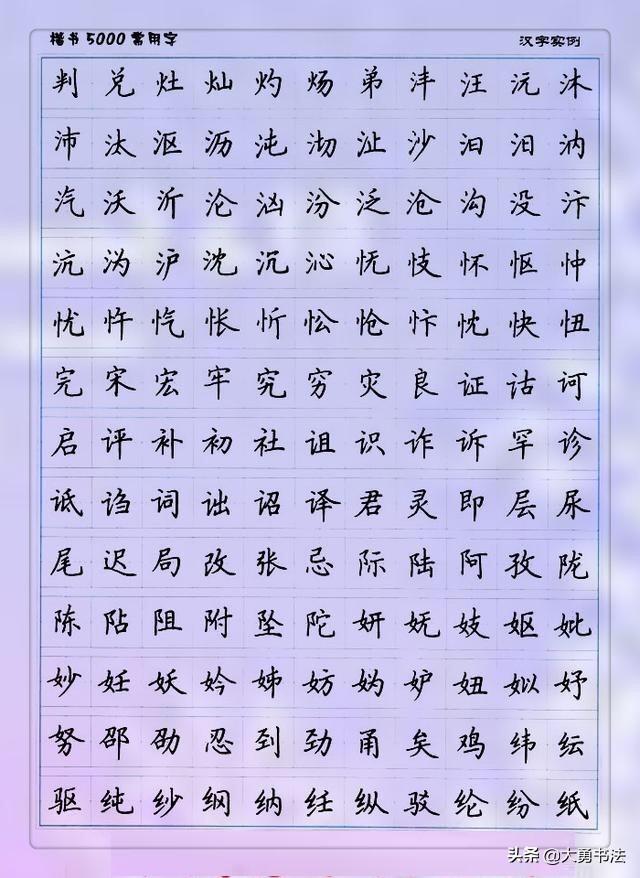 楷书5000常用字 汉字实例
判兑灶灿灼炀弟沣汪沅沐
沛汰沤沥沌沏沚沙汩汨汭
汽沃沂沦汹汾泛沧沟没汴
沆沩沪沈沉沁怃忮怀怄忡
忧忤忾怅忻忪怆忭忱快忸
完宋宏牢究穷灾良证诂诃
启评补初社诅识诈诉罕诊
诋诌词诎诏译君灵即层尿
尾迟局改张忌际陆阿孜陇
陈阽阻附坠陀妍妩妓妪妣
妙妊妖妗姊妨妫妒妞姒妤
努邵劭忍到劲甬矣鸡纬纭
驱纯纱纲纳纴纵驳纶纷纸
头条 @大勇书法